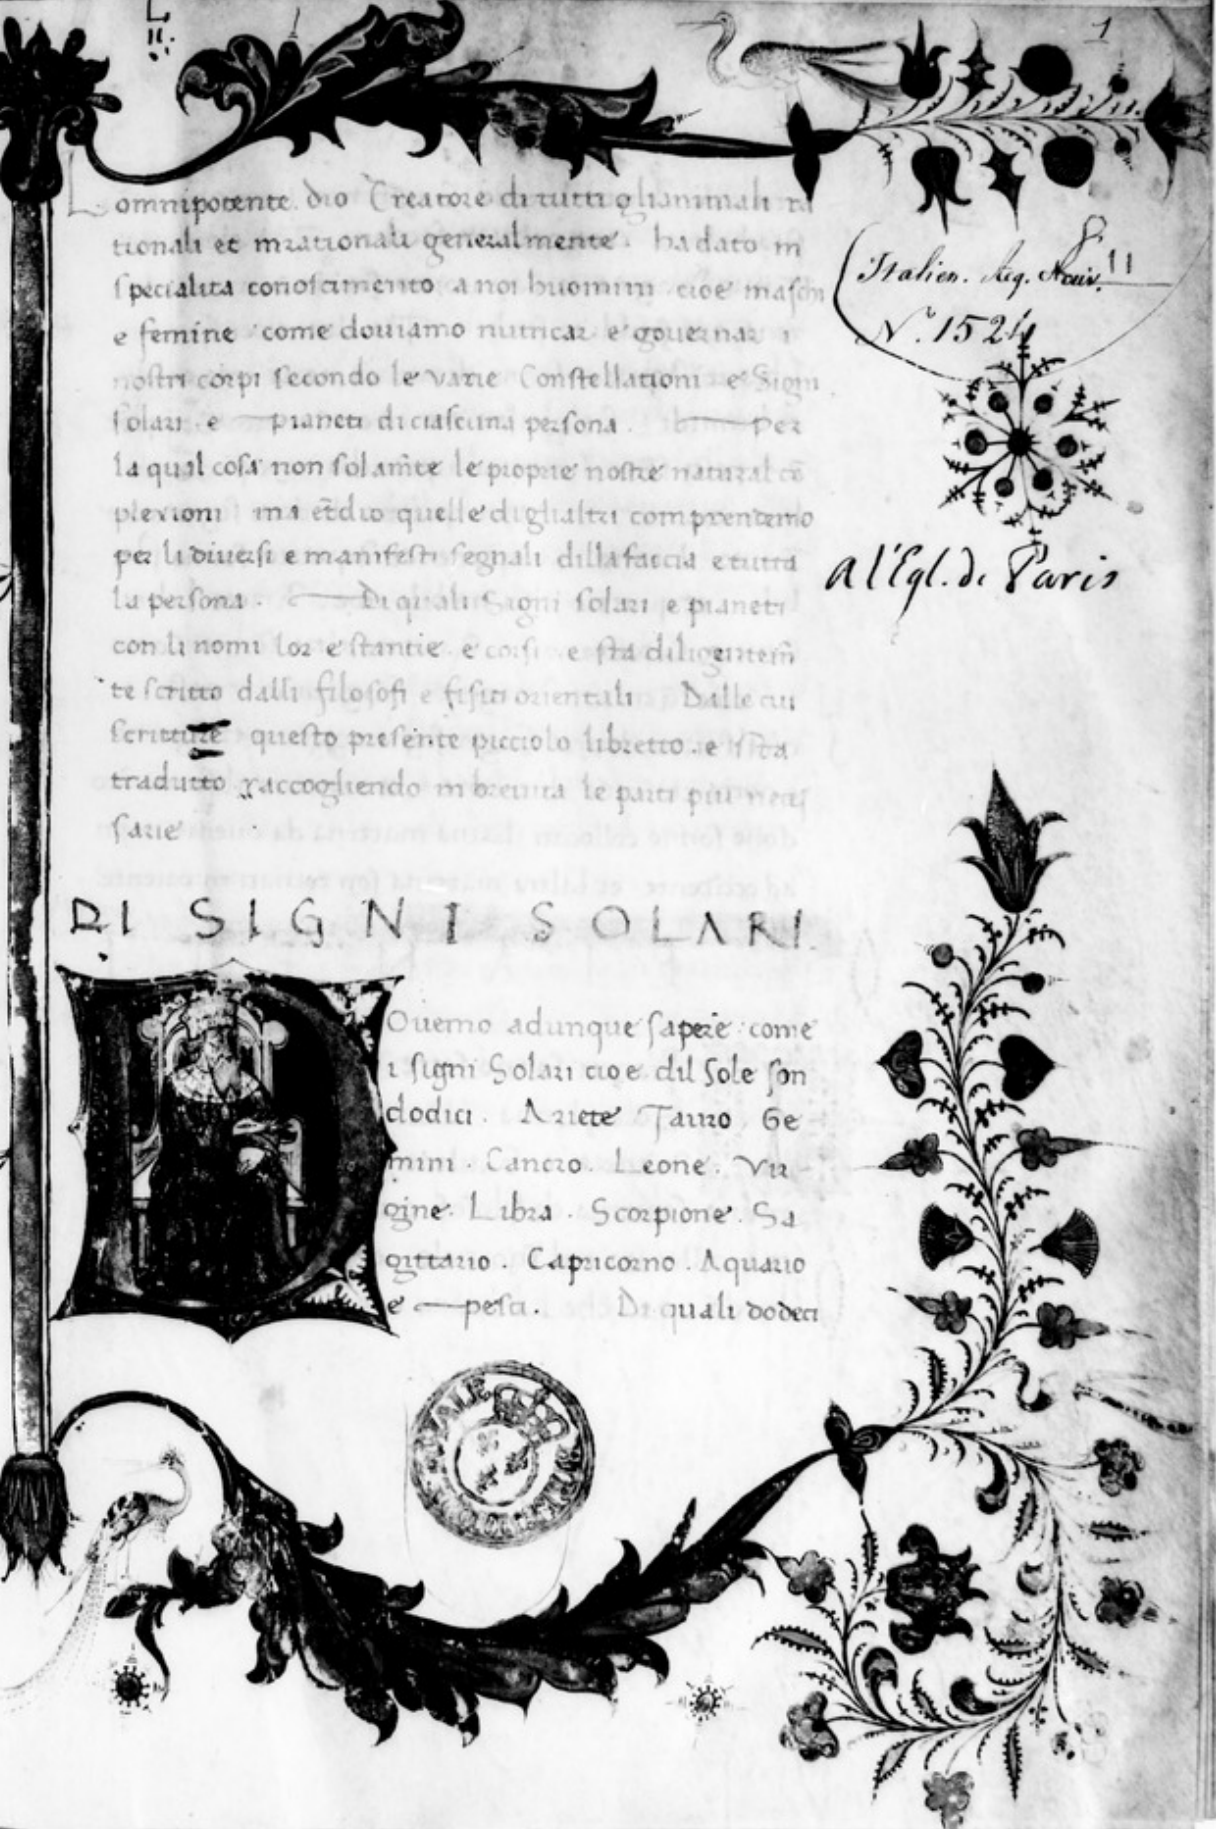 1
L omnipotente dio Creatore di tutti glianimali ra
tionali et inrationali generalmente. ha dato in
specialita conoscimento a noi huomini cioe maschi
e femine come doviamo nutricar e governar i
nostri corpi secondo le varie Constellationi e Signi
solari e pianeti di ciascuna persona. Per
la qual cosa non solam̄te le proprie nostre natural cō
plexioni ma et̄dio quelle di glialtri comprendemo
per li diversi e manifesti segnali dilla faccia e tutta
la persona. Di quali Signi solari e pianeti
con li nomi lor e stantie e corsi e sta diligentem̄
te scritto dalli filosofi e fisici orientali Dalle cui
scritture questo presente picciolo libretto e sta
tradutto raccogliendo in brevita le parti piu neces
sarie
DI SIGNI SOLARI.
DOvemo adunque sapere come
i signi Solari cioe dil Sole son
dodici. Ariete Tauro Ge
mini. Cancro. Leone. Vir
gine. Libra. Scorpione. Sa
gittario. Capricorno. Aquario
e pesci. Di quali dodeci
Italien. Reg.
N.º 1524
a l'Egl. de Paris